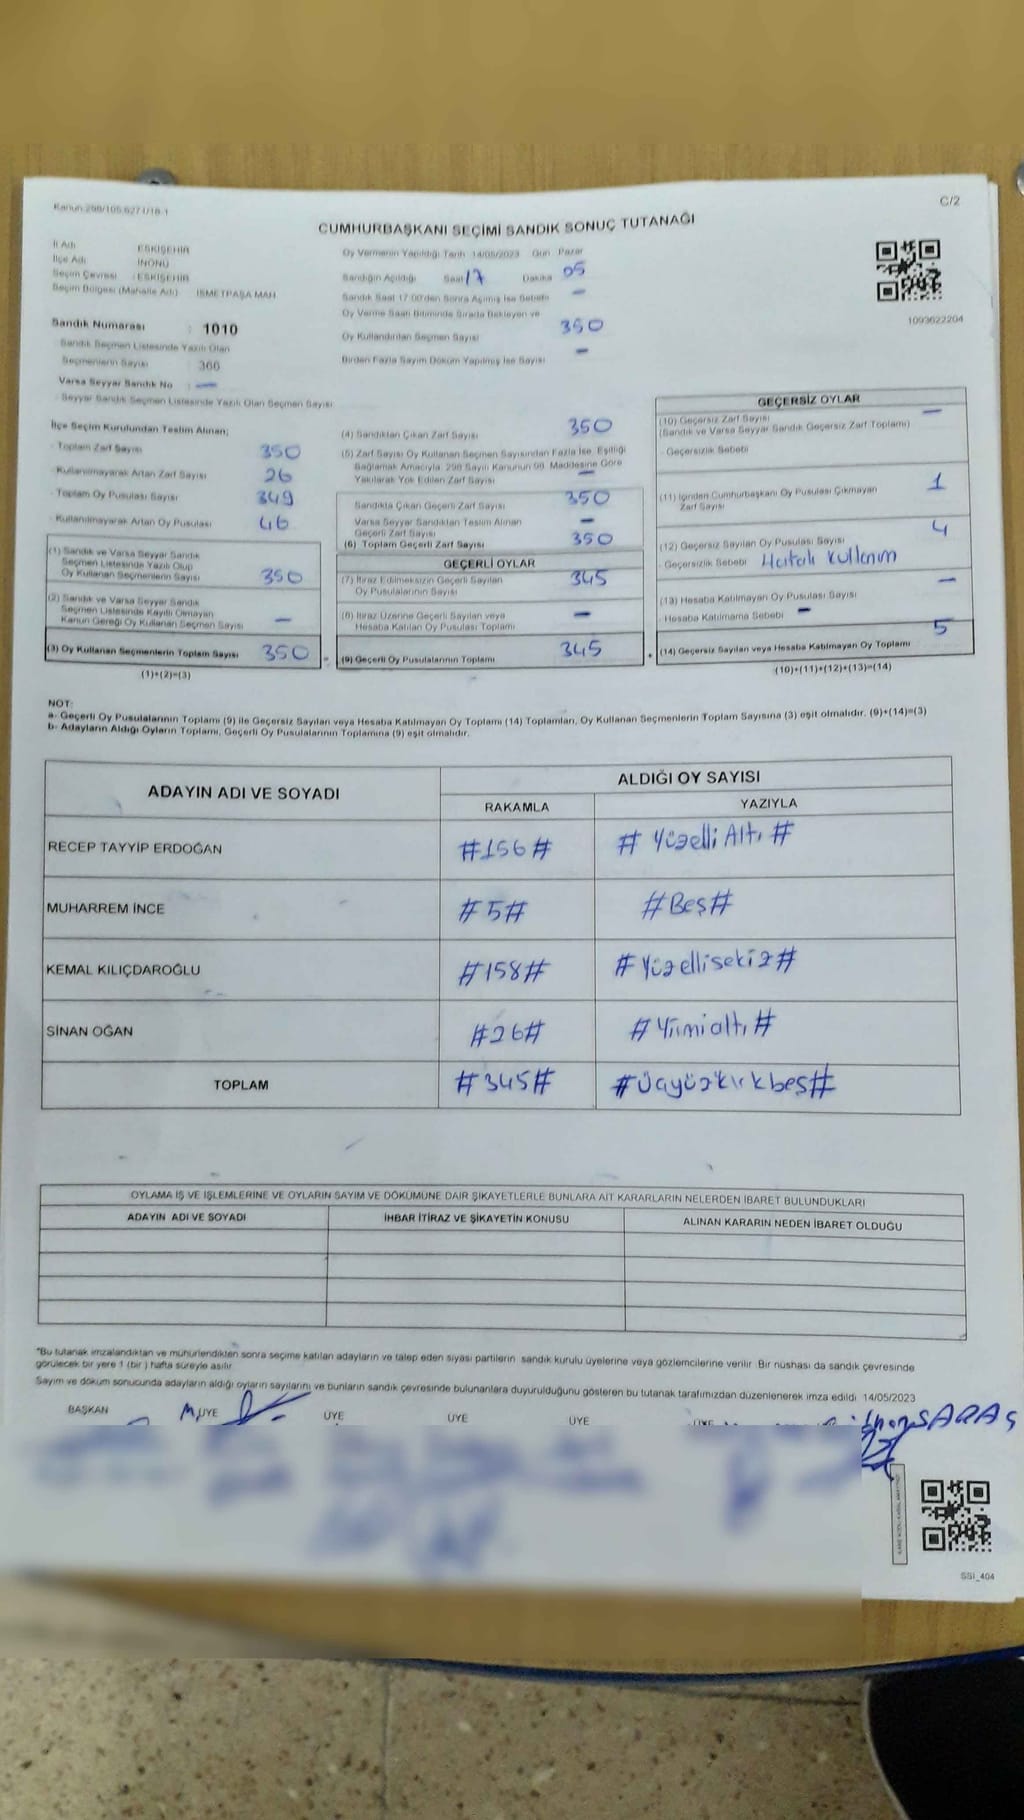 Kanun:298/105,6271/18-1
C/2
CUMHURBAŞKANI SEÇİMİ SANDIK SONUÇ TUTANAĞI
İl Adı ESKİŞEHİR
İlçe Adı İNÖNÜ
Seçim Çevresi : ESKİŞEHİR
Seçim Bölgesi (Mahalle Adı) İSMETPAŞA MAH.
Oy Vermenin Yapıldığı Tarih 14/05/2023 Gün Pazar
Sandığın Açıldığı Saat 17 Dakika 05
Sandık Saat 17.00'den Sonra Açılmış İse Sebebi –
Oy Verme Saati Bitiminde Sırada Bekleyen ve
Oy Kullandırılan Seçmen Sayısı 350
Birden Fazla Sayım Döküm Yapılmış İse Sayısı –
1093622204
Sandık Numarası : 1010
Sandık Seçmen Listesinde Yazılı Olan
Seçmenlerin Sayısı : 366
Varsa Seyyar Sandık No : –
Seyyar Sandık Seçmen Listesinde Yazılı Olan Seçmen Sayısı
İlçe Seçim Kurulundan Teslim Alınan;
- Toplam Zarf Sayısı 350
- Kullanılmayarak Artan Zarf Sayısı 26
- Toplam Oy Pusulası Sayısı 349
- Kullanılmayarak Artan Oy Pusulası 46
(1) Sandık ve Varsa Seyyar Sandık
Seçmen Listesinde Yazılı Olup
Oy Kullanan Seçmenlerin Sayısı 350
(2) Sandık ve Varsa Seyyar Sandık
Seçmen Listesinde Kayıtlı Olmayan
Kanun Gereği Oy Kullanan Seçmen Sayısı –
(3) Oy Kullanan Seçmenlerin Toplam Sayısı 350
(1)+(2)=(3)
(4) Sandıktan Çıkan Zarf Sayısı 350
(5) Zarf Sayısı Oy Kullanan Seçmen Sayısından Fazla İse, Eşitliği
Sağlamak Amacıyla, 298 Sayılı Kanunun 98. Maddesine Göre
Yakılarak Yok Edilen Zarf Sayısı –
Sandıkta Çıkan Geçerli Zarf Sayısı 350
Varsa Seyyar Sandıktan Teslim Alınan
Geçerli Zarf Sayısı –
(6) Toplam Geçerli Zarf Sayısı 350
GEÇERLİ OYLAR
(7) İtiraz Edilmeksizin Geçerli Sayılan
Oy Pusulalarının Sayısı 345
(8) İtiraz Üzerine Geçerli Sayılan veya
Hesaba Katılan Oy Pusulası Toplamı –
(9) Geçerli Oy Pusulalarının Toplamı 345
GEÇERSİZ OYLAR
(10) Geçersiz Zarf Sayısı –
(Sandık ve Varsa Seyyar Sandık Geçersiz Zarf Toplamı)
- Geçersizlik Sebebi
(11) İçinden Cumhurbaşkanı Oy Pusulası Çıkmayan
Zarf Sayısı 1
(12) Geçersiz Sayılan Oy Pusulası Sayısı 4
- Geçersizlik Sebebi Hatalı kullanım
(13) Hesaba Katılmayan Oy Pusulası Sayısı –
- Hesaba Katılmama Sebebi –
(14) Geçersiz Sayılan veya Hesaba Katılmayan Oy Toplamı 5
(10)+(11)+(12)+(13)=(14)
NOT:
a- Geçerli Oy Pusulalarının Toplamı (9) ile Geçersiz Sayılan veya Hesaba Katılmayan Oy Toplamı (14) Toplamları, Oy Kullanan Seçmenlerin Toplam Sayısına (3) eşit olmalıdır. (9)+(14)=(3)
b- Adayların Aldığı Oyların Toplamı, Geçerli Oy Pusulalarının Toplamına (9) eşit olmalıdır.
ADAYIN ADI VE SOYADI ALDIĞI OY SAYISI
RAKAMLA YAZIYLA
RECEP TAYYİP ERDOĞAN #156# # Yüzelli Altı #
MUHARREM İNCE #5# #Beş#
KEMAL KILIÇDAROĞLU #158# # Yüzellisekiz#
SİNAN OĞAN #26# # Yirmialtı #
TOPLAM #345# #Üçyüzkırkbeş#
OYLAMA İŞ VE İŞLEMLERİNE VE OYLARIN SAYIM VE DÖKÜMÜNE DAİR ŞİKAYETLERLE BUNLARA AİT KARARLARIN NELERDEN İBARET BULUNDUKLARI
ADAYIN ADI VE SOYADI İHBAR İTİRAZ VE ŞİKAYETİN KONUSU ALINAN KARARIN NEDEN İBARET OLDUĞU
*Bu tutanak imzalandıktan ve mühürlendikten sonra seçime katılan adayların ve talep eden siyasi partilerin sandık kurulu üyelerine veya gözlemcilerine verilir. Bir nüshası da sandık çevresinde
görülecek bir yere 1 (bir ) hafta süreyle asılır.
Sayım ve döküm sonucunda adayların aldığı oyların sayılarını ve bunların sandık çevresinde bulunanlara duyurulduğunu gösteren bu tutanak tarafımızdan düzenlenerek imza edildi. 14/05/2023
BAŞKAN ÜYE ÜYE ÜYE ÜYE ÜYE
SARAÇ
SSİ_404